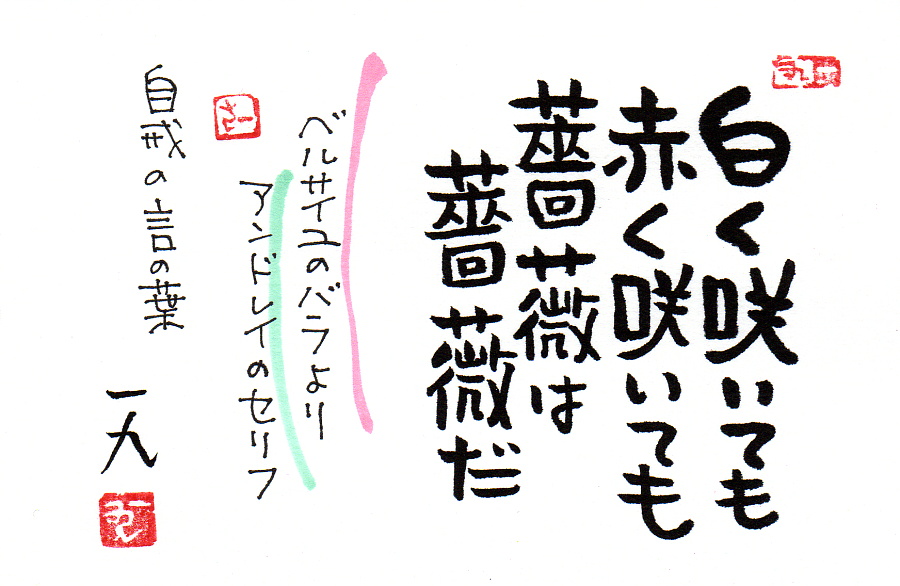 白く咲いても
赤く咲いても
薔薇は
薔薇だ
ベルサイユのバラより
アンドレイのセリフ
自戒の言の葉
一九